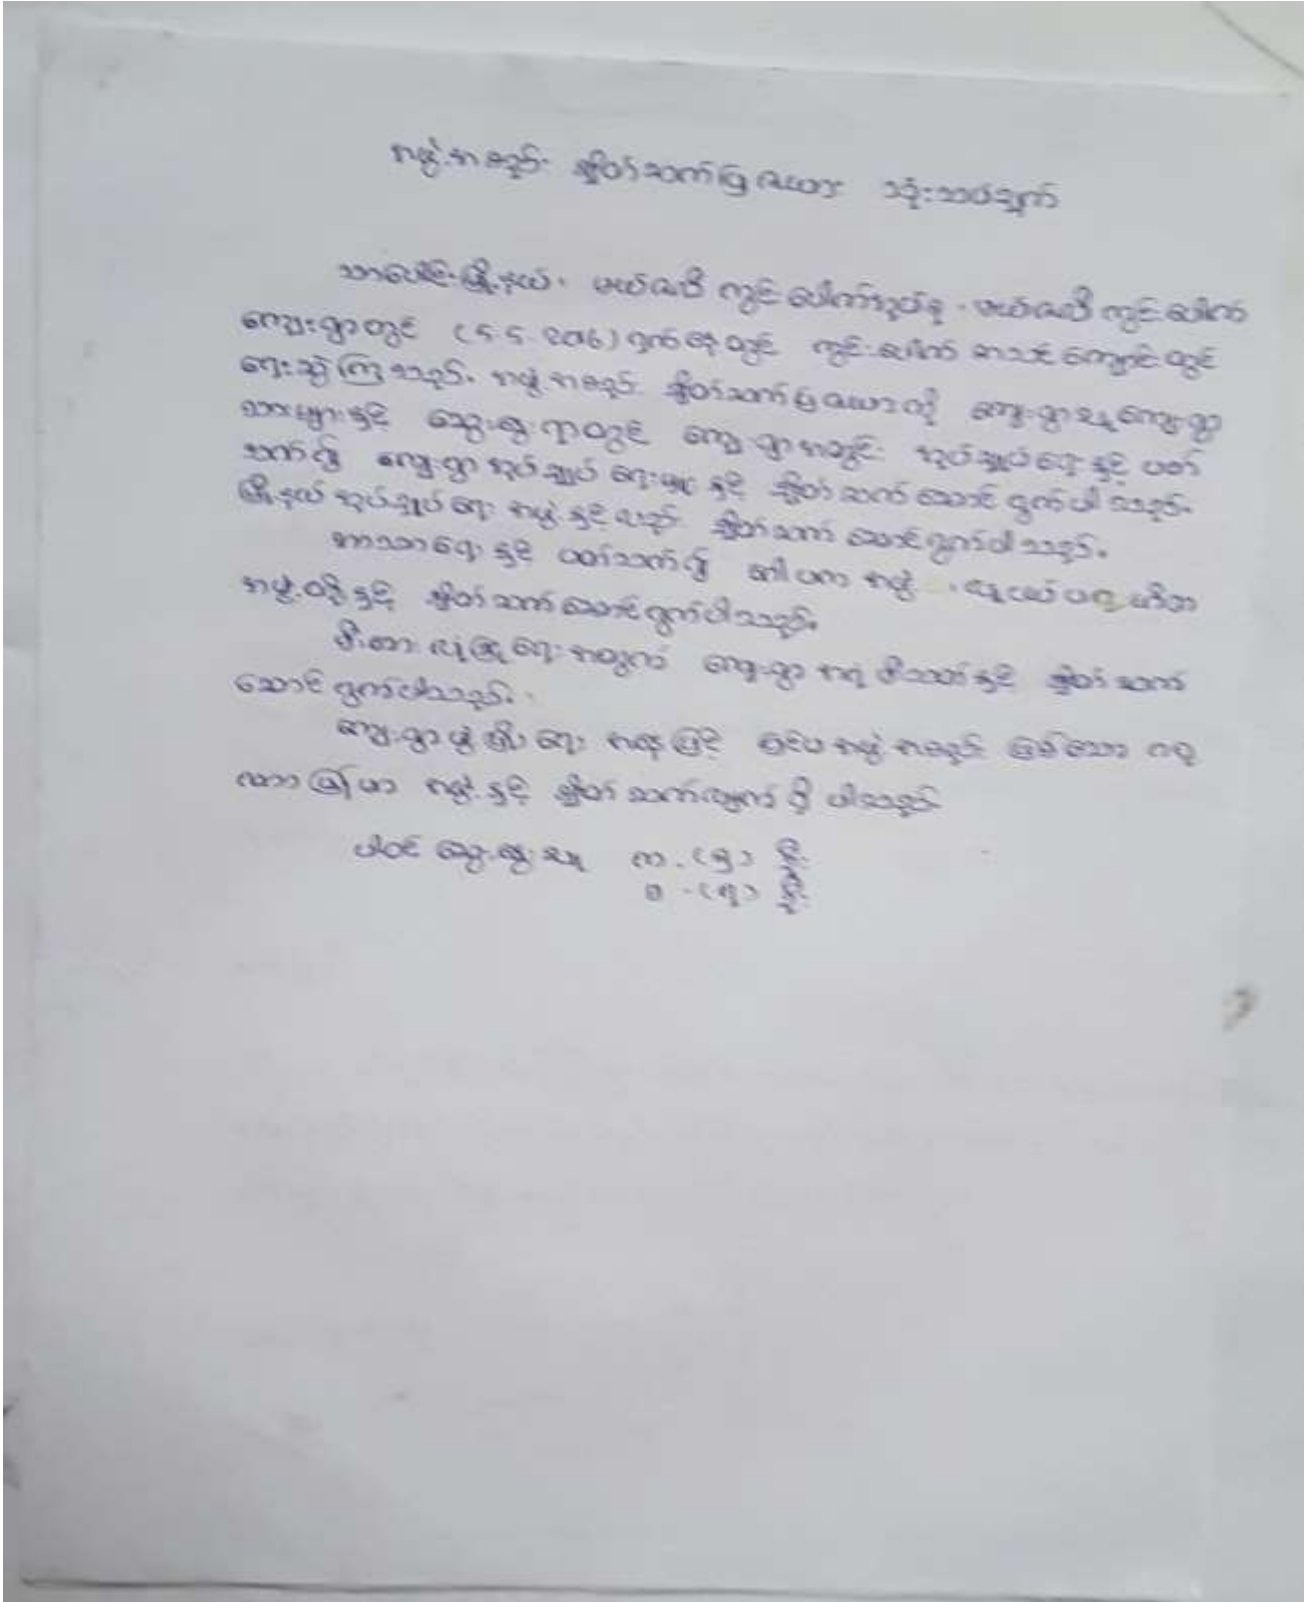 အဖွဲ့အစည်း ချိတ်ဆက်ပြဇယား သုံးသပ်ချက်
သာပေါင်းမြို့နယ်၊ မယ်ဇလီ ကွင်းပေါက်အုပ်စု၊ မယ်ဇလီ ကွင်းပေါက်
ကျေးရွာတွင် (၄.၄.၂၀၁၆) ရက်နေ့တွင် ကွင်းပေါက် စာသင်ကျောင်းတွင်
ရေးဆွဲကြသည်။ အဖွဲ့အစည်း ချိတ်ဆက်ပြဇယားကို ကျေးရွာသူကျေးရွာ
သားများနှင့် ဆွေးနွေးရာတွင် ကျေးရွာအတွင်း အုပ်ချုပ်ရေးနှင့် ပတ်
သက်၍ ကျေးရွာအုပ်ချုပ်ရေးမှူးနှင့် ချိတ်ဆက်ဆောင်ရွက်ပါသည်။
မြို့နယ်အုပ်ချုပ်ရေးအဖွဲ့နှင့်လည်း ချိတ်ဆက်ဆောင်ရွက်ပါသည်။
ဘာသာရေးနှင့် ပတ်သက်၍ ဂေါပကအဖွဲ့၊ လူငယ်ပရဟိတ
အဖွဲ့တို့နှင့် ချိတ်ဆက်ဆောင်ရွက်ပါသည်။
မီးဘေးလုံခြုံရေးအတွက် ကျေးရွာ အရံမီးသတ်နှင့် ချိတ်ဆက်
ဆောင်ရွက်ပါသည်။
ကျေးရွာဖွံ့ဖြိုးရေး အနေဖြင့် ပြင်ပအဖွဲ့အစည်း ဖြစ်သော
အဖွဲ့နှင့် ချိတ်ဆက်လျက်ရှိပါသည်
ပါဝင်ဆွေးနွေးသူ ကျား - ဦး
မ - ဦး